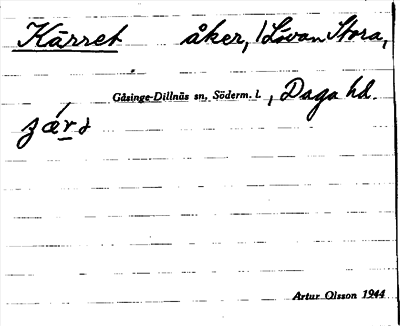 Kärret åker, Lövan Stora,
Gåsinge-Dillnäs sn, Söderm. l., Daga hd.
Artur Olsson 1944